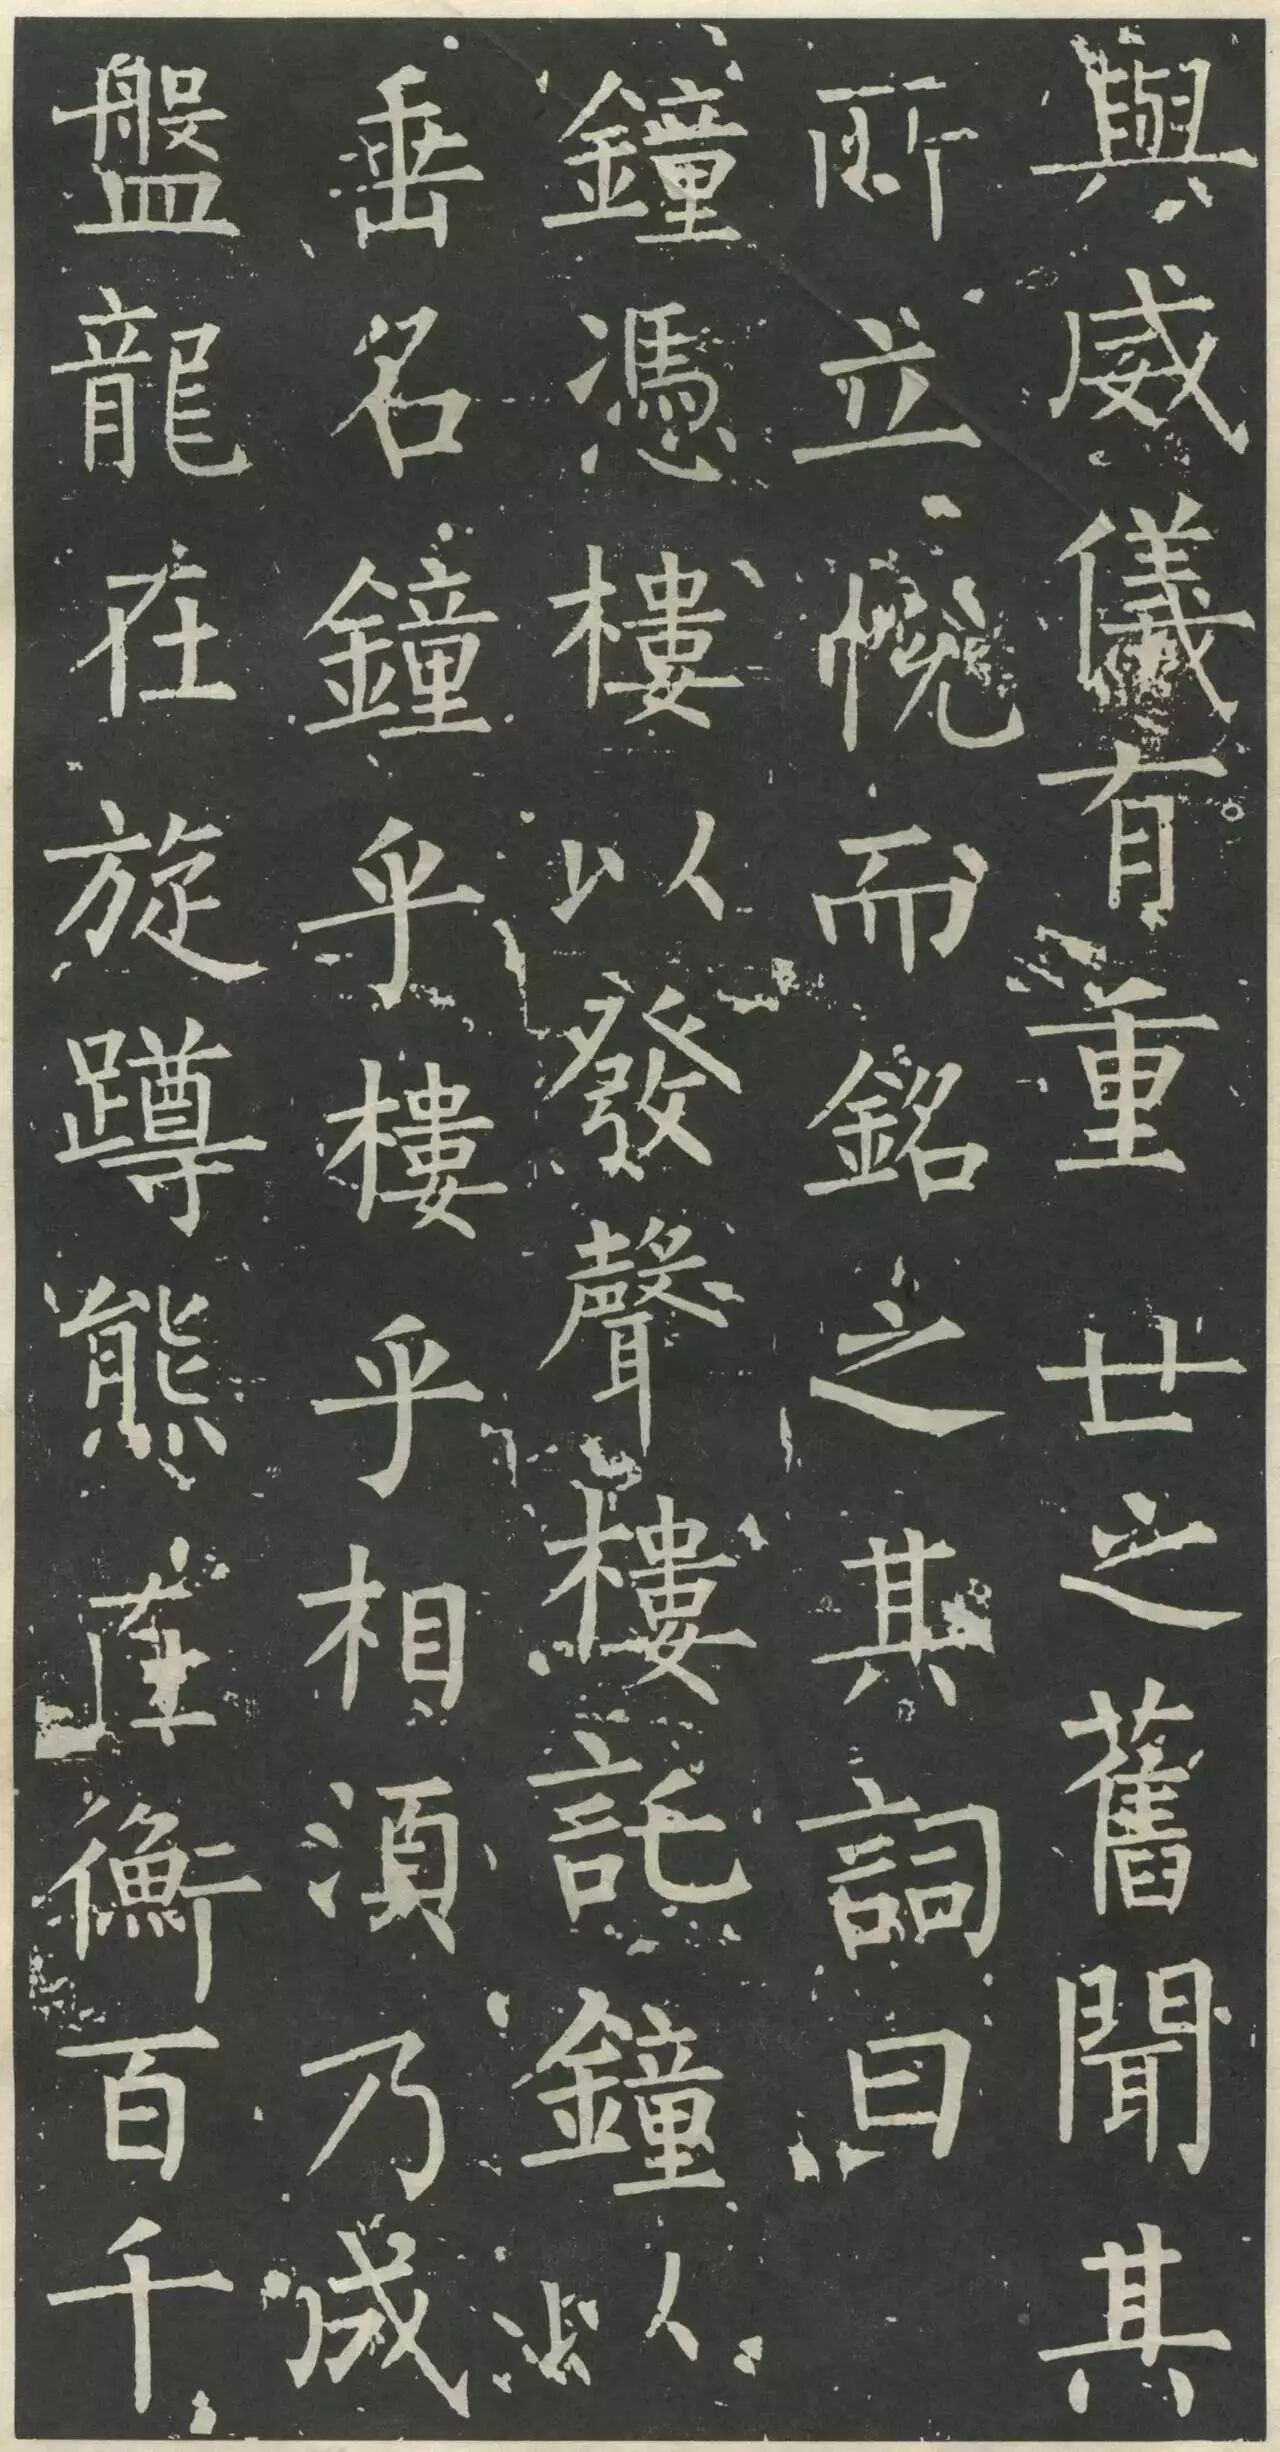 與威儀有重世之舊聞其
所立悅而銘之其詞曰
鐘憑樓以發聲樓託鐘以
垂名鐘乎樓乎相須乃成
盤龍在旋蹲熊 衡百千